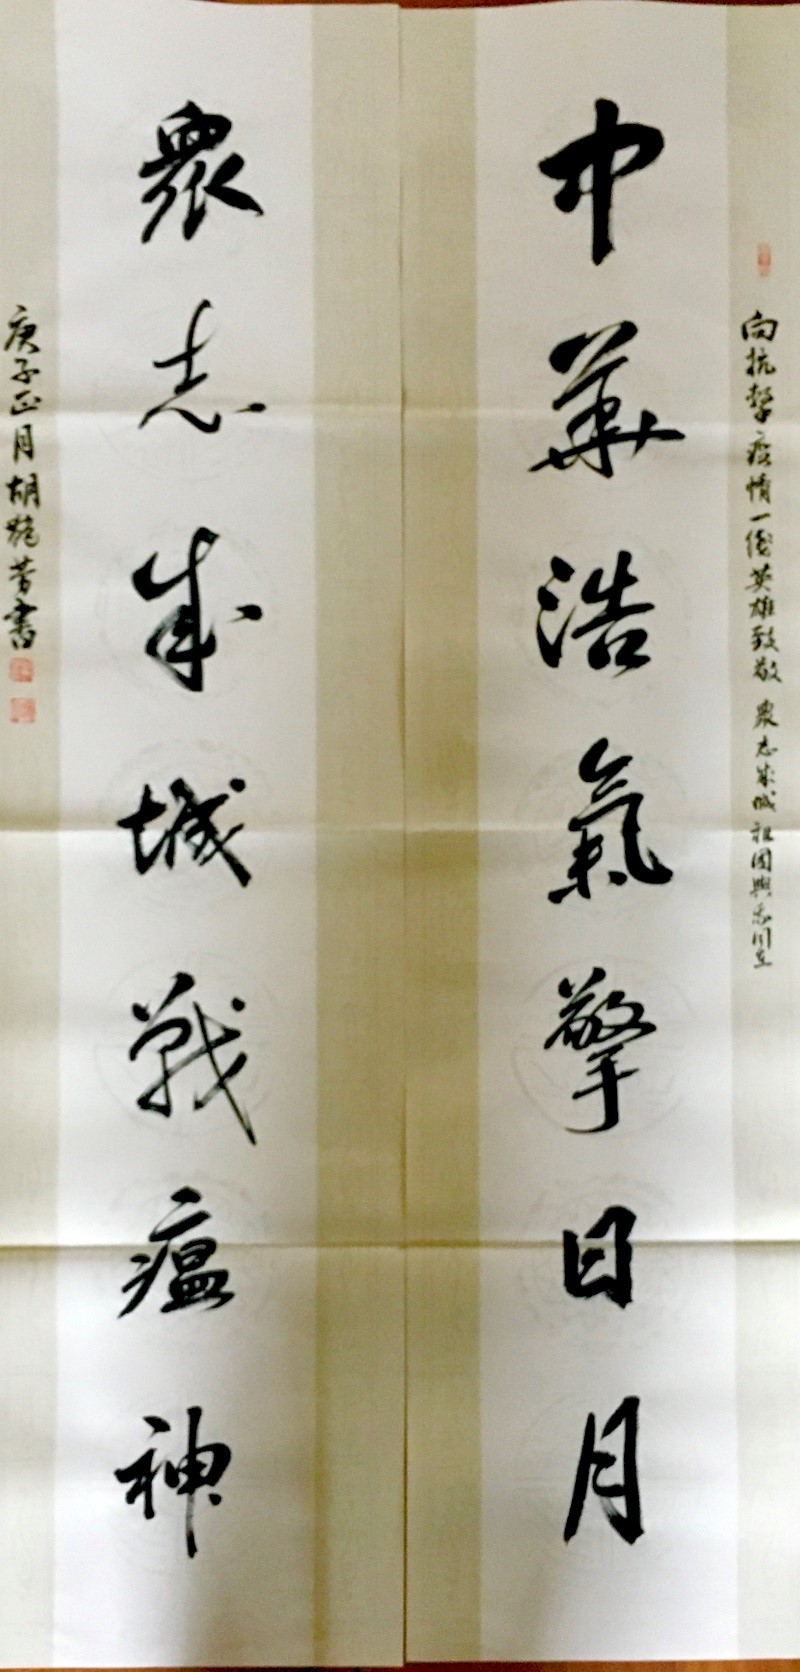 向抗擊疫情一綫英雄致敬 衆志成城 祖國與
中華浩氣擎日月
衆志成城戰瘟神
庚子正月胡艷芳書